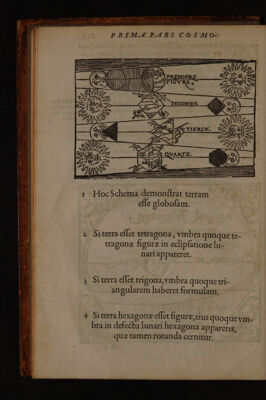 PRIMA PARS COSMO-
PREMIERE
FIGVRE.
SECONDE.
TIERCE.
QVARTE.
1 Hoc Schema demonſtrat terram
eſſe globoſam.
2 Si terra eſſet tetragona, vmbra quoque te-
tragonæ figuræ in eclipſatione lu-
nari appareret.
3 Si terra eſſet trigona, vmbra quoque tri-
angularem haberet formulam.
4 Si terra hexagonæ eſſet figuræ, eius quoque vm-
bra in defectu lunari hexagona appareret,
quæ tamen rotunda cernitur.